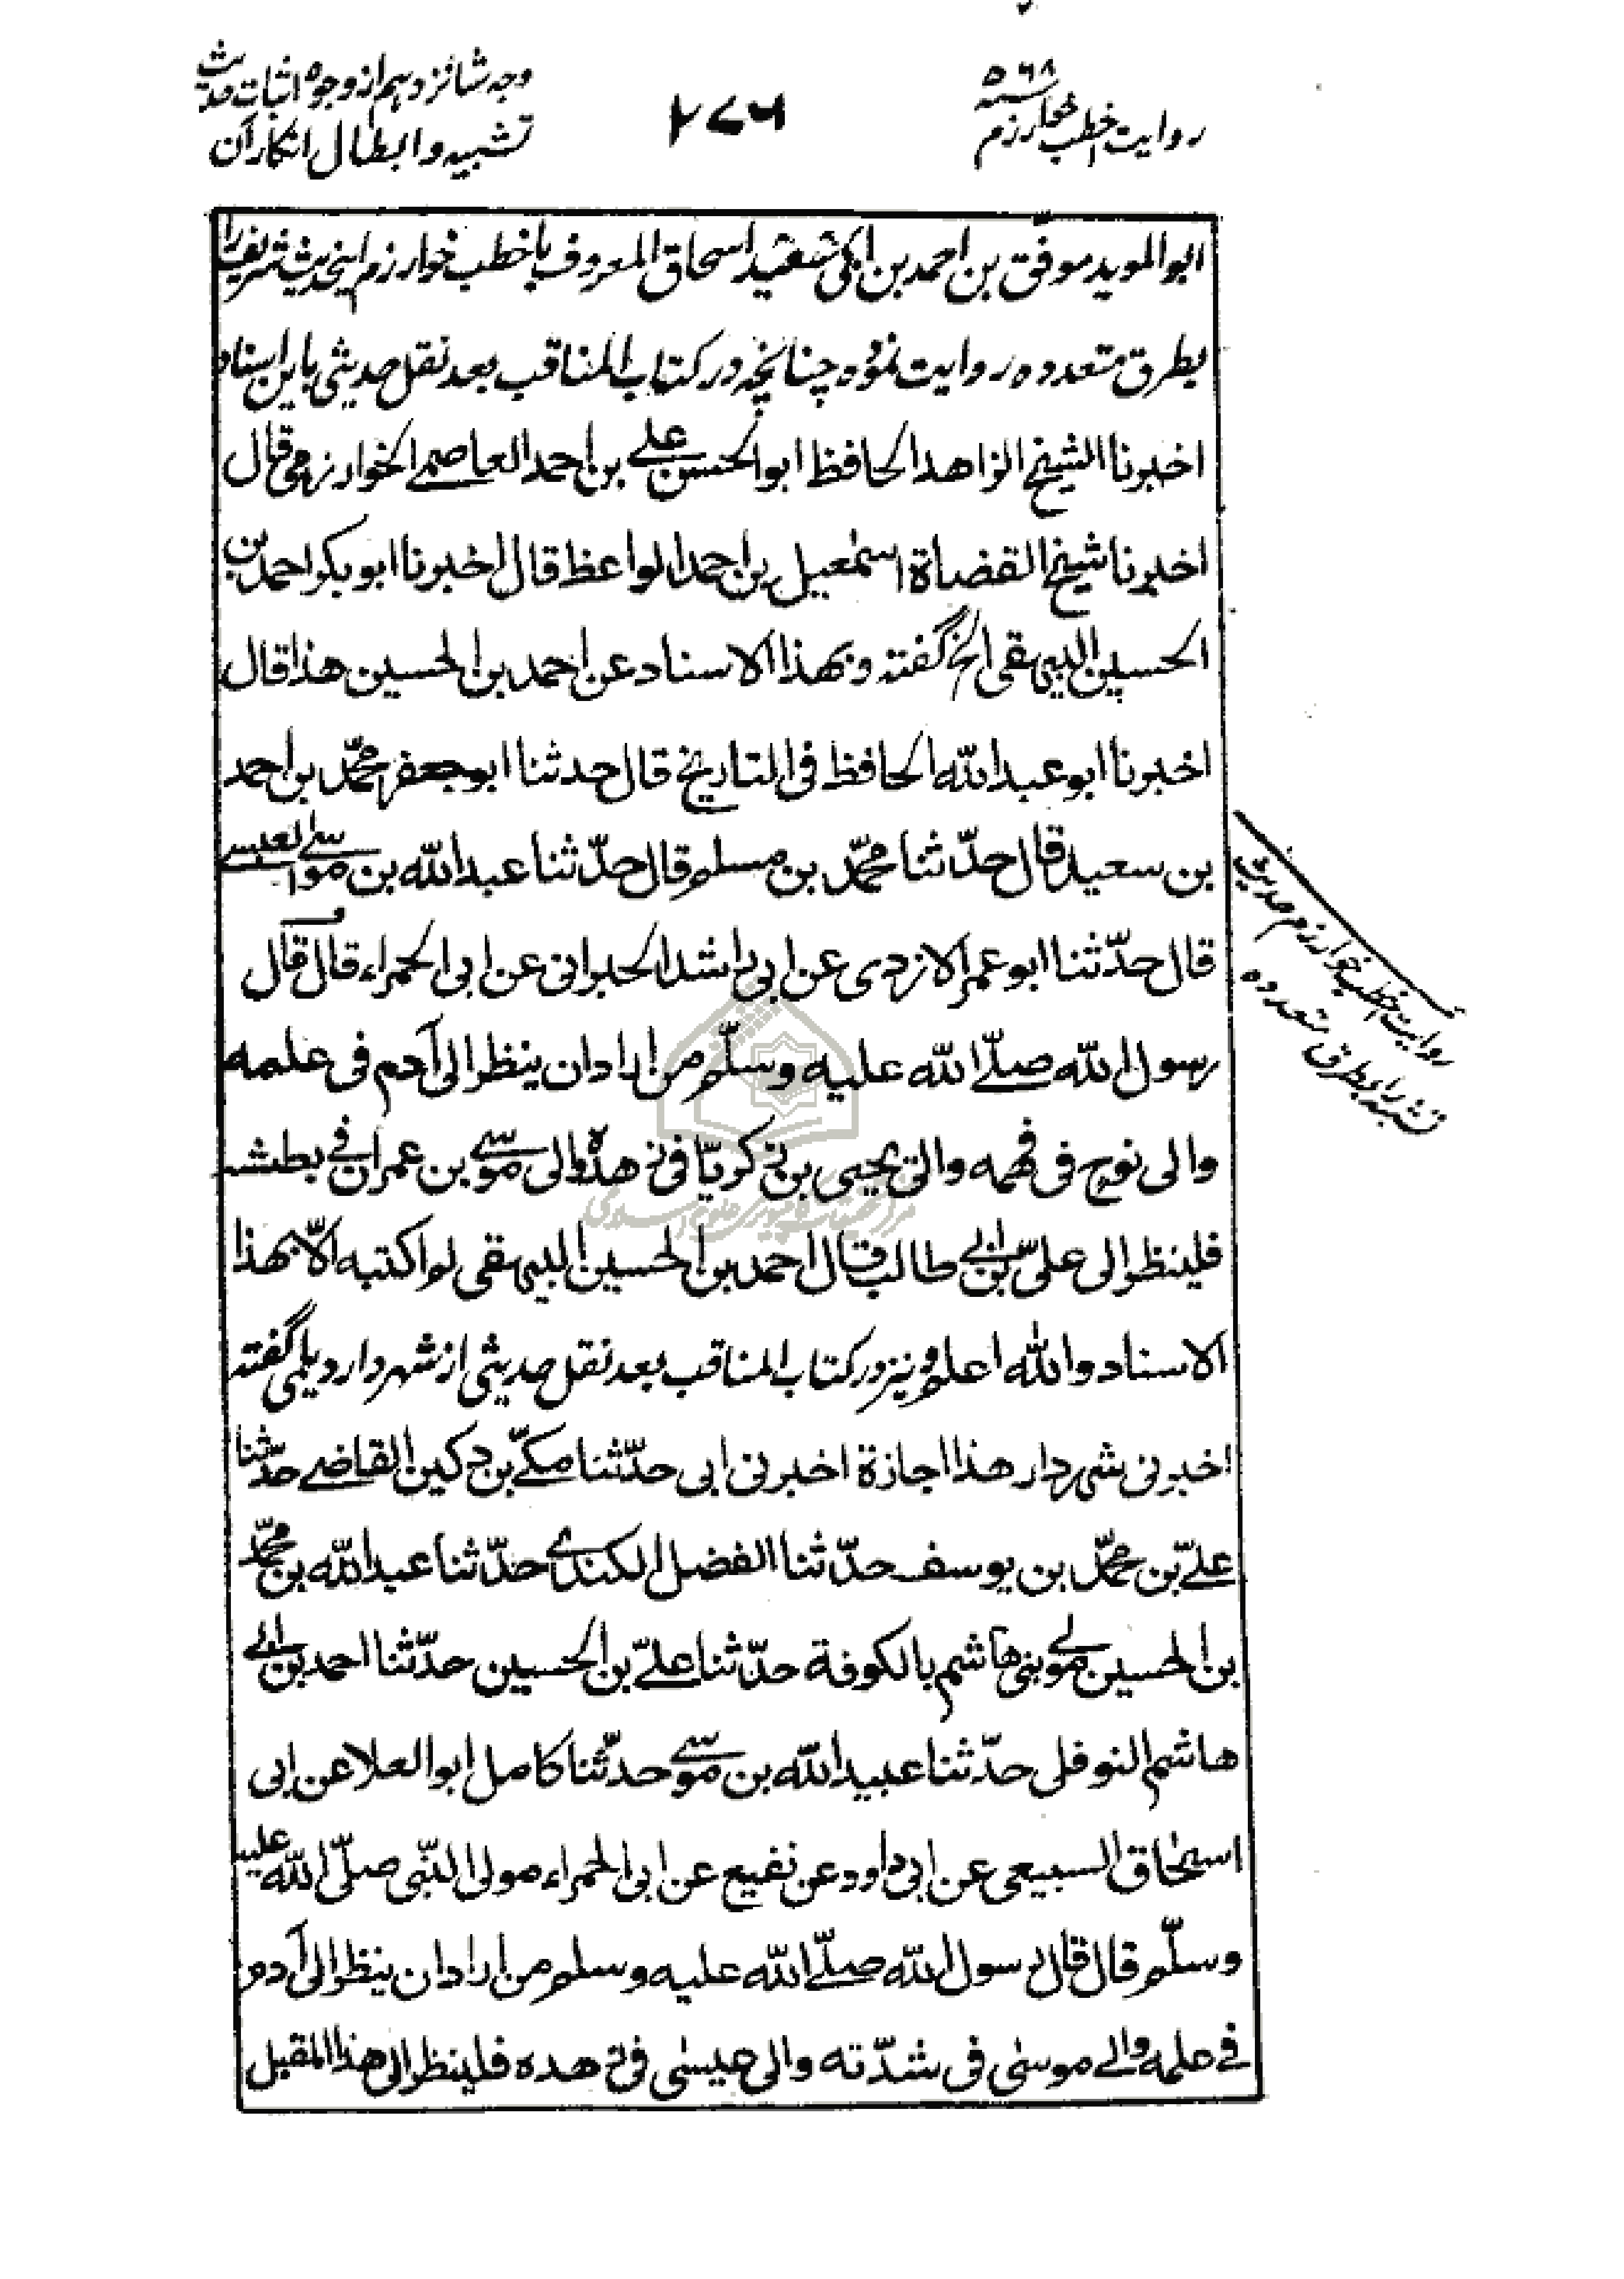 روایت اخطب خوارزم سنه ۵۶۸
۲۷۶
وجه شانزدهم از وجوه اثبات حدیث
تشبیه و ابطال انکار آن
ابو الموید موفّق بن احمد بن ابی سعید اسحاق المعروف باخطب خوارزم اینحدیث شریف را
بطرق متعدده روایت نموده چنانچه در کتاب المناقب بعد نقل حدیثی باین اسناد
اخبرنا الشیخ الزاهد الحافظ ابو الحسن علی بن احمد العاصمی الخوارزمی قال
اخبرنا شیخ القضاة اسمٰعیل بن احمد الواعظ قال اخبرنا ابو بکر احمد بن
الحسین البیهقی الخ گفته و بهذا الاسناد عن احمد بن الحسین هذا قال
اخبرنا ابو عبد الله الحافظ فی التاریخ قال حدثنا ابو جعفر محمّد بن احمد
بن سعید قال حدّثنا محمّد بن مسلم قال حدّثنا عبد الله بن موسی العبسی
قال حدّثنا ابو عمر الازدی عن ابی راشد الحبرانی عن ابی الحمراء قال قال
رسول الله صلّی الله علیه وسلّم من اراد ان ینظر الی آدم فی علمه
والی نوح فی فهمه والی یحیی بن زکریّا فی زهده والی موسی بن عمران فی بطشه
فلینظر الی علیّ بن ابی طالب قال احمد بن الحسین البیهقی لو اکتبه الّا بهذا
الاسناد والله اعلم و نیز در کتاب المناقب بعد نقل حدیثی از شهردار دیلمی گفته
اخبرنی شهردار هذا اجازة اخبرنی ابی حدّثنا مکّی بن دکین القاضی حدّثنا
علیّ بن محمّد بن یوسف حدّثنا الفضل الکندی حدّثنا عبد الله بن محمّد
بن الحسین مولی بنی هاشم بالکوفة حدّثنا علیّ بن الحسین حدّثنا احمد بن ابی
هاشم النوفلی حدّثنا عبید الله بن موسی حدّثنا کامل ابو العلا عن ابی
اسحاق السبیعی عن ابی داود عن نفیع عن ابی الحمراء مولی النّبی صلّی الله علیه
وسلّم قال قال رسول الله صلّی الله علیه وسلم من اراد ان ینظر الی آدم
فی علمه والی موسیٰ فی شدّته والی عیسیٰ فی زهده فلینظر الی هذا المقبل
روایت اخطب خوارزم حدیث
تشبیه را بطرق متعدده